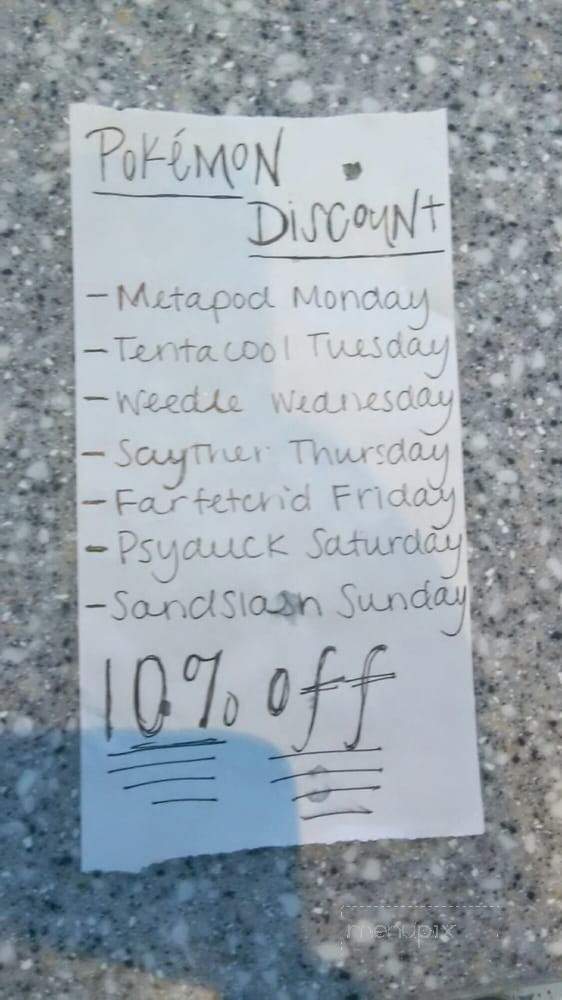 Pokémon
Discount
- Metapod Monday
- Tentacool Tuesday
- Weedle Wednesday
- Sayther Thursday
- Farfetch'd Friday
- Psyduck Saturday
- Sandslash Sunday
10% off
menupix